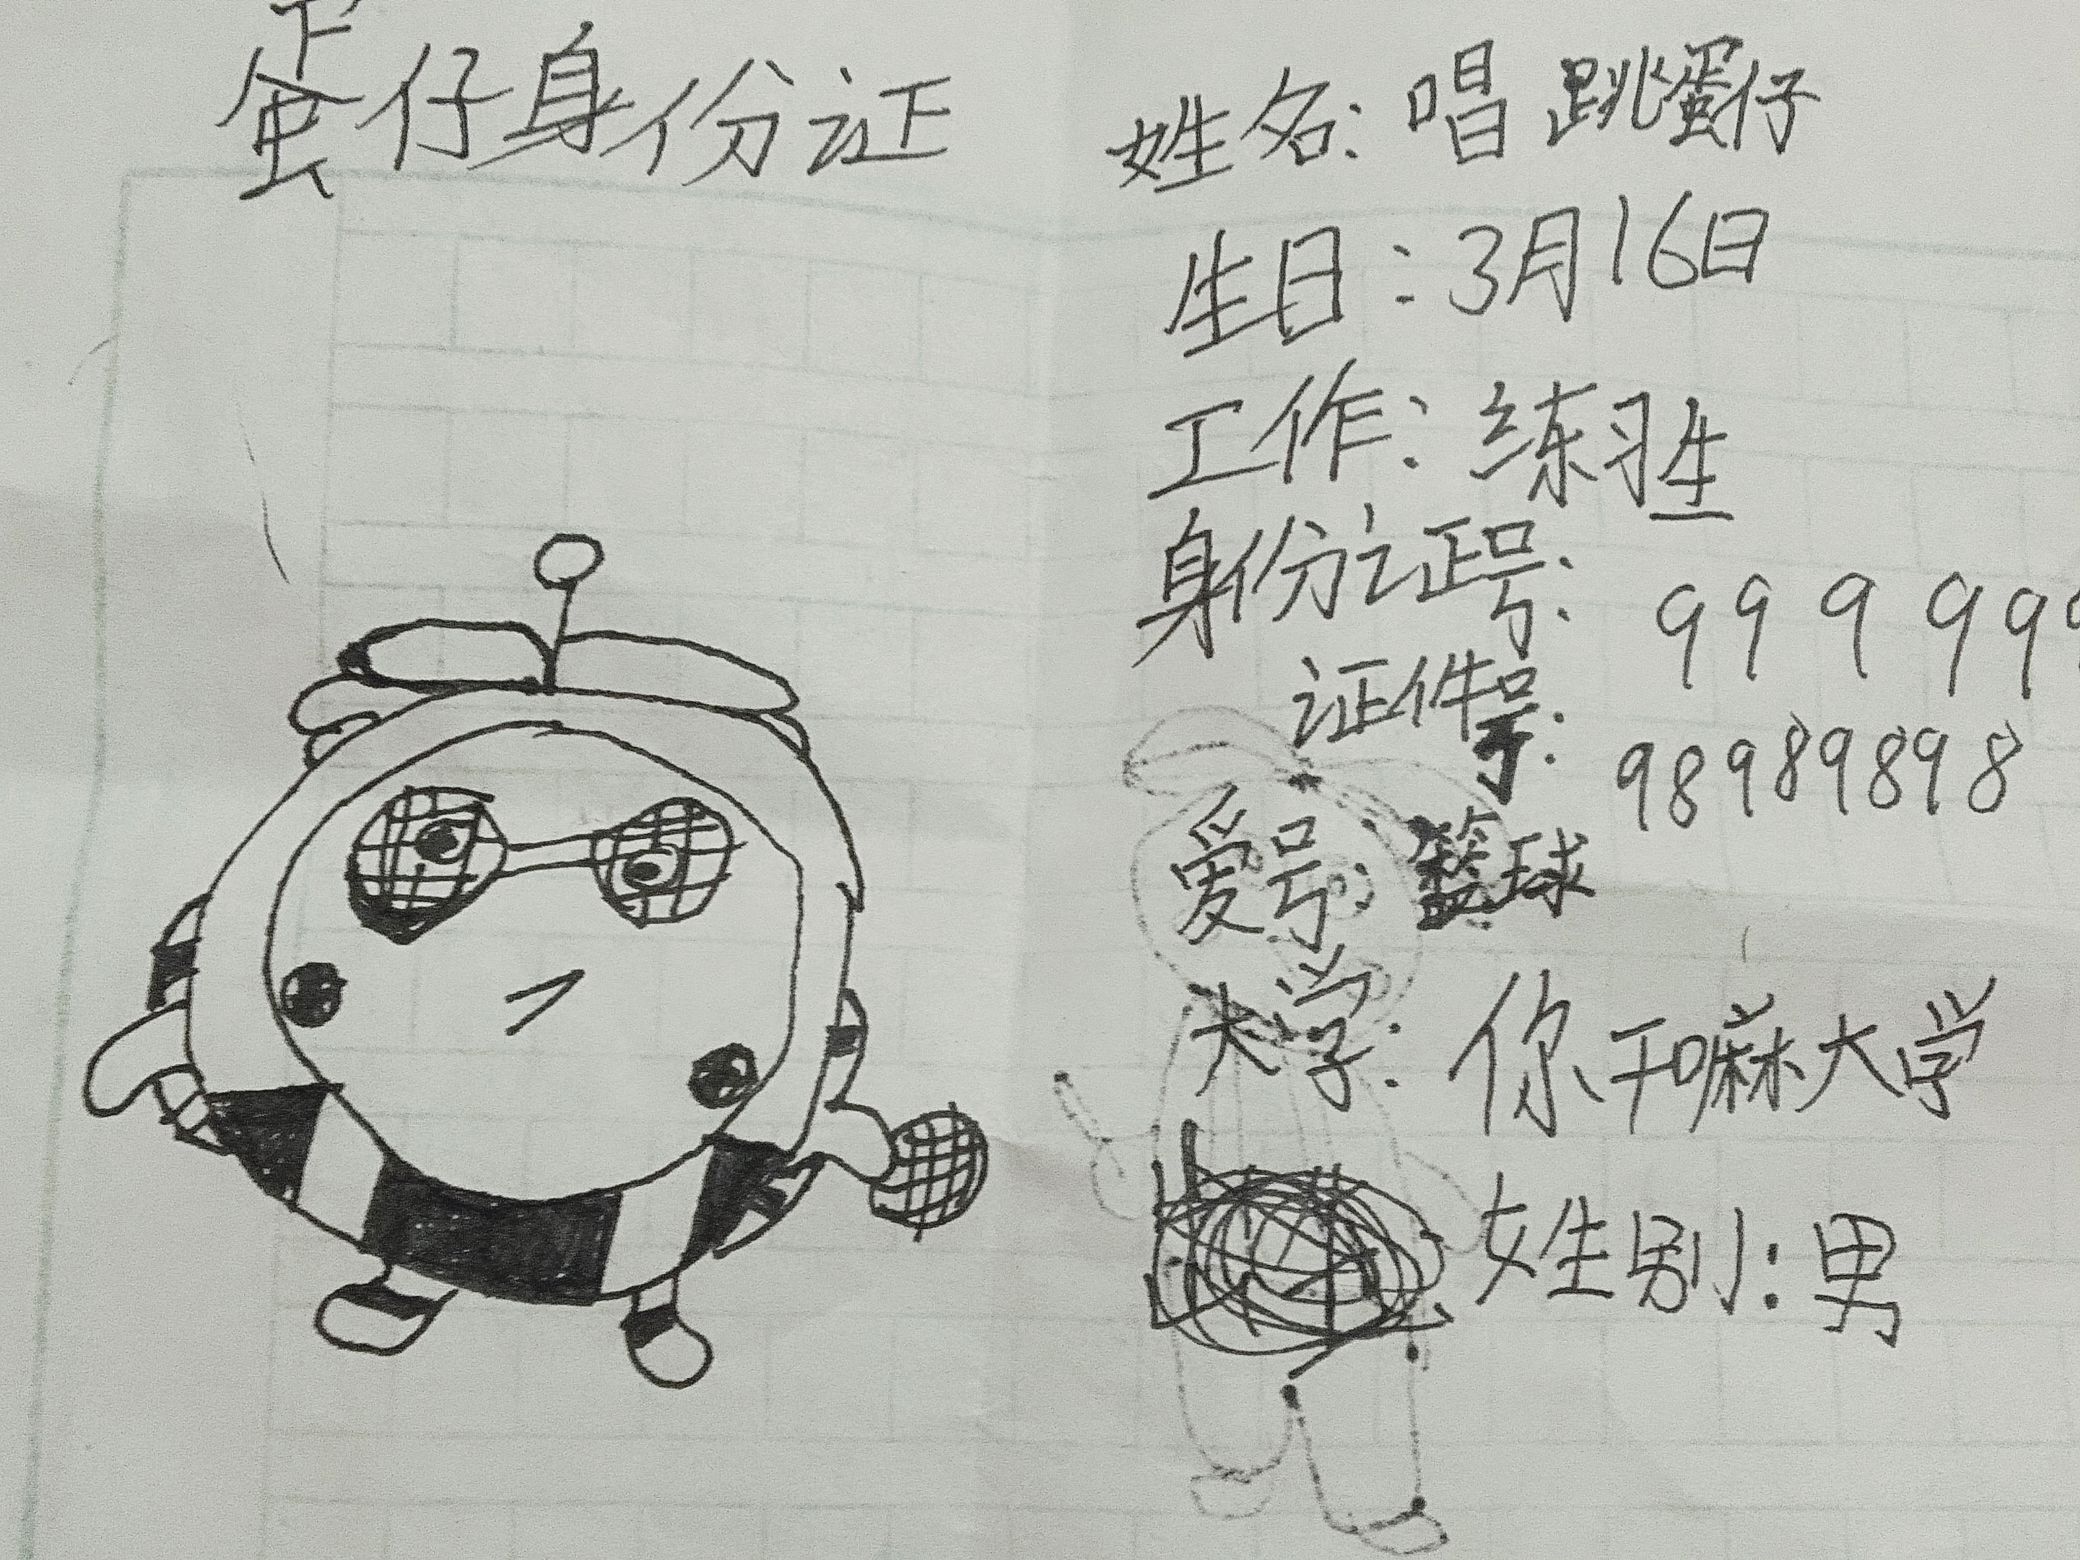 蛋仔身份证
姓名:唱跳蛋仔
生日:3月16日
工作:练习生
身份证号: 999999
证件号: 989898898
爱号:篮球
大学:你干嘛大学
姓别:男